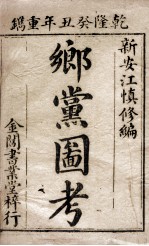 乾隆癸丑年重鐫
新安江慎修編
鄉黨圖考
金閶書業堂梓行